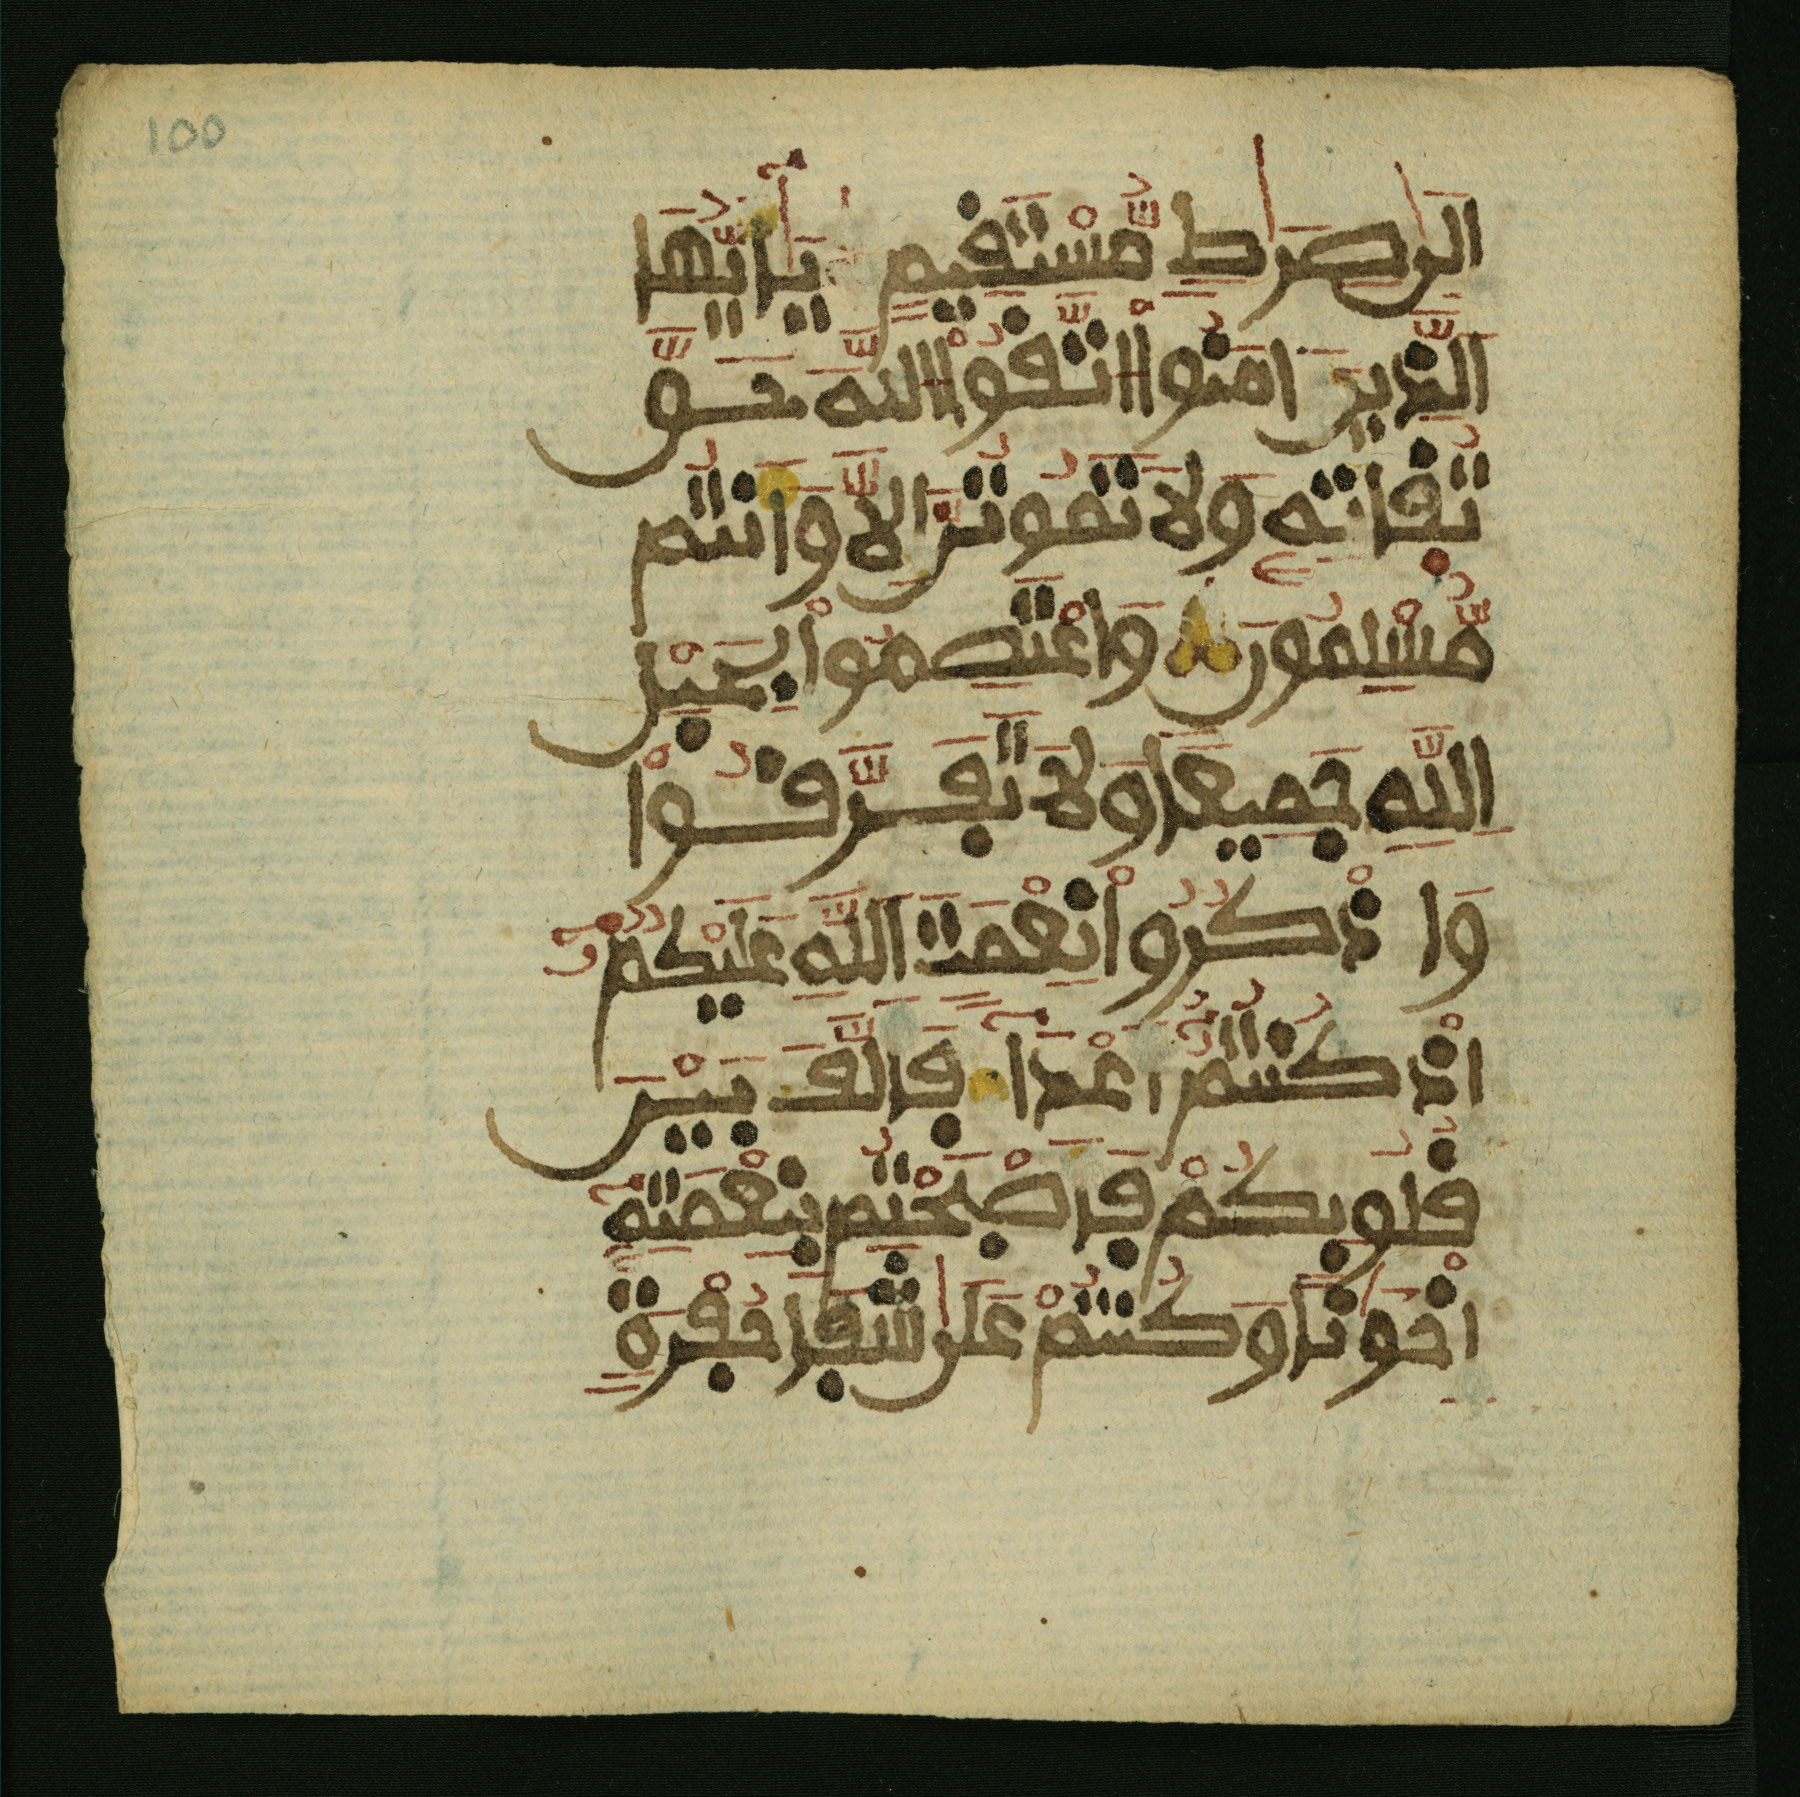 100
الى صراط مستقيم يايها
الذين امنوا اتقوا الله حق
تقاته ولا تموتن الا وانتم
مسلمون واعتصموا بحبل
الله جميعا ولا تفرقوا
واذكروا نعمت الله عليكم
اذ كنتم اعدا فالف بين
قلوبكم فاصبحتم بنعمته
اخونا وكنتم على شفا حفرة